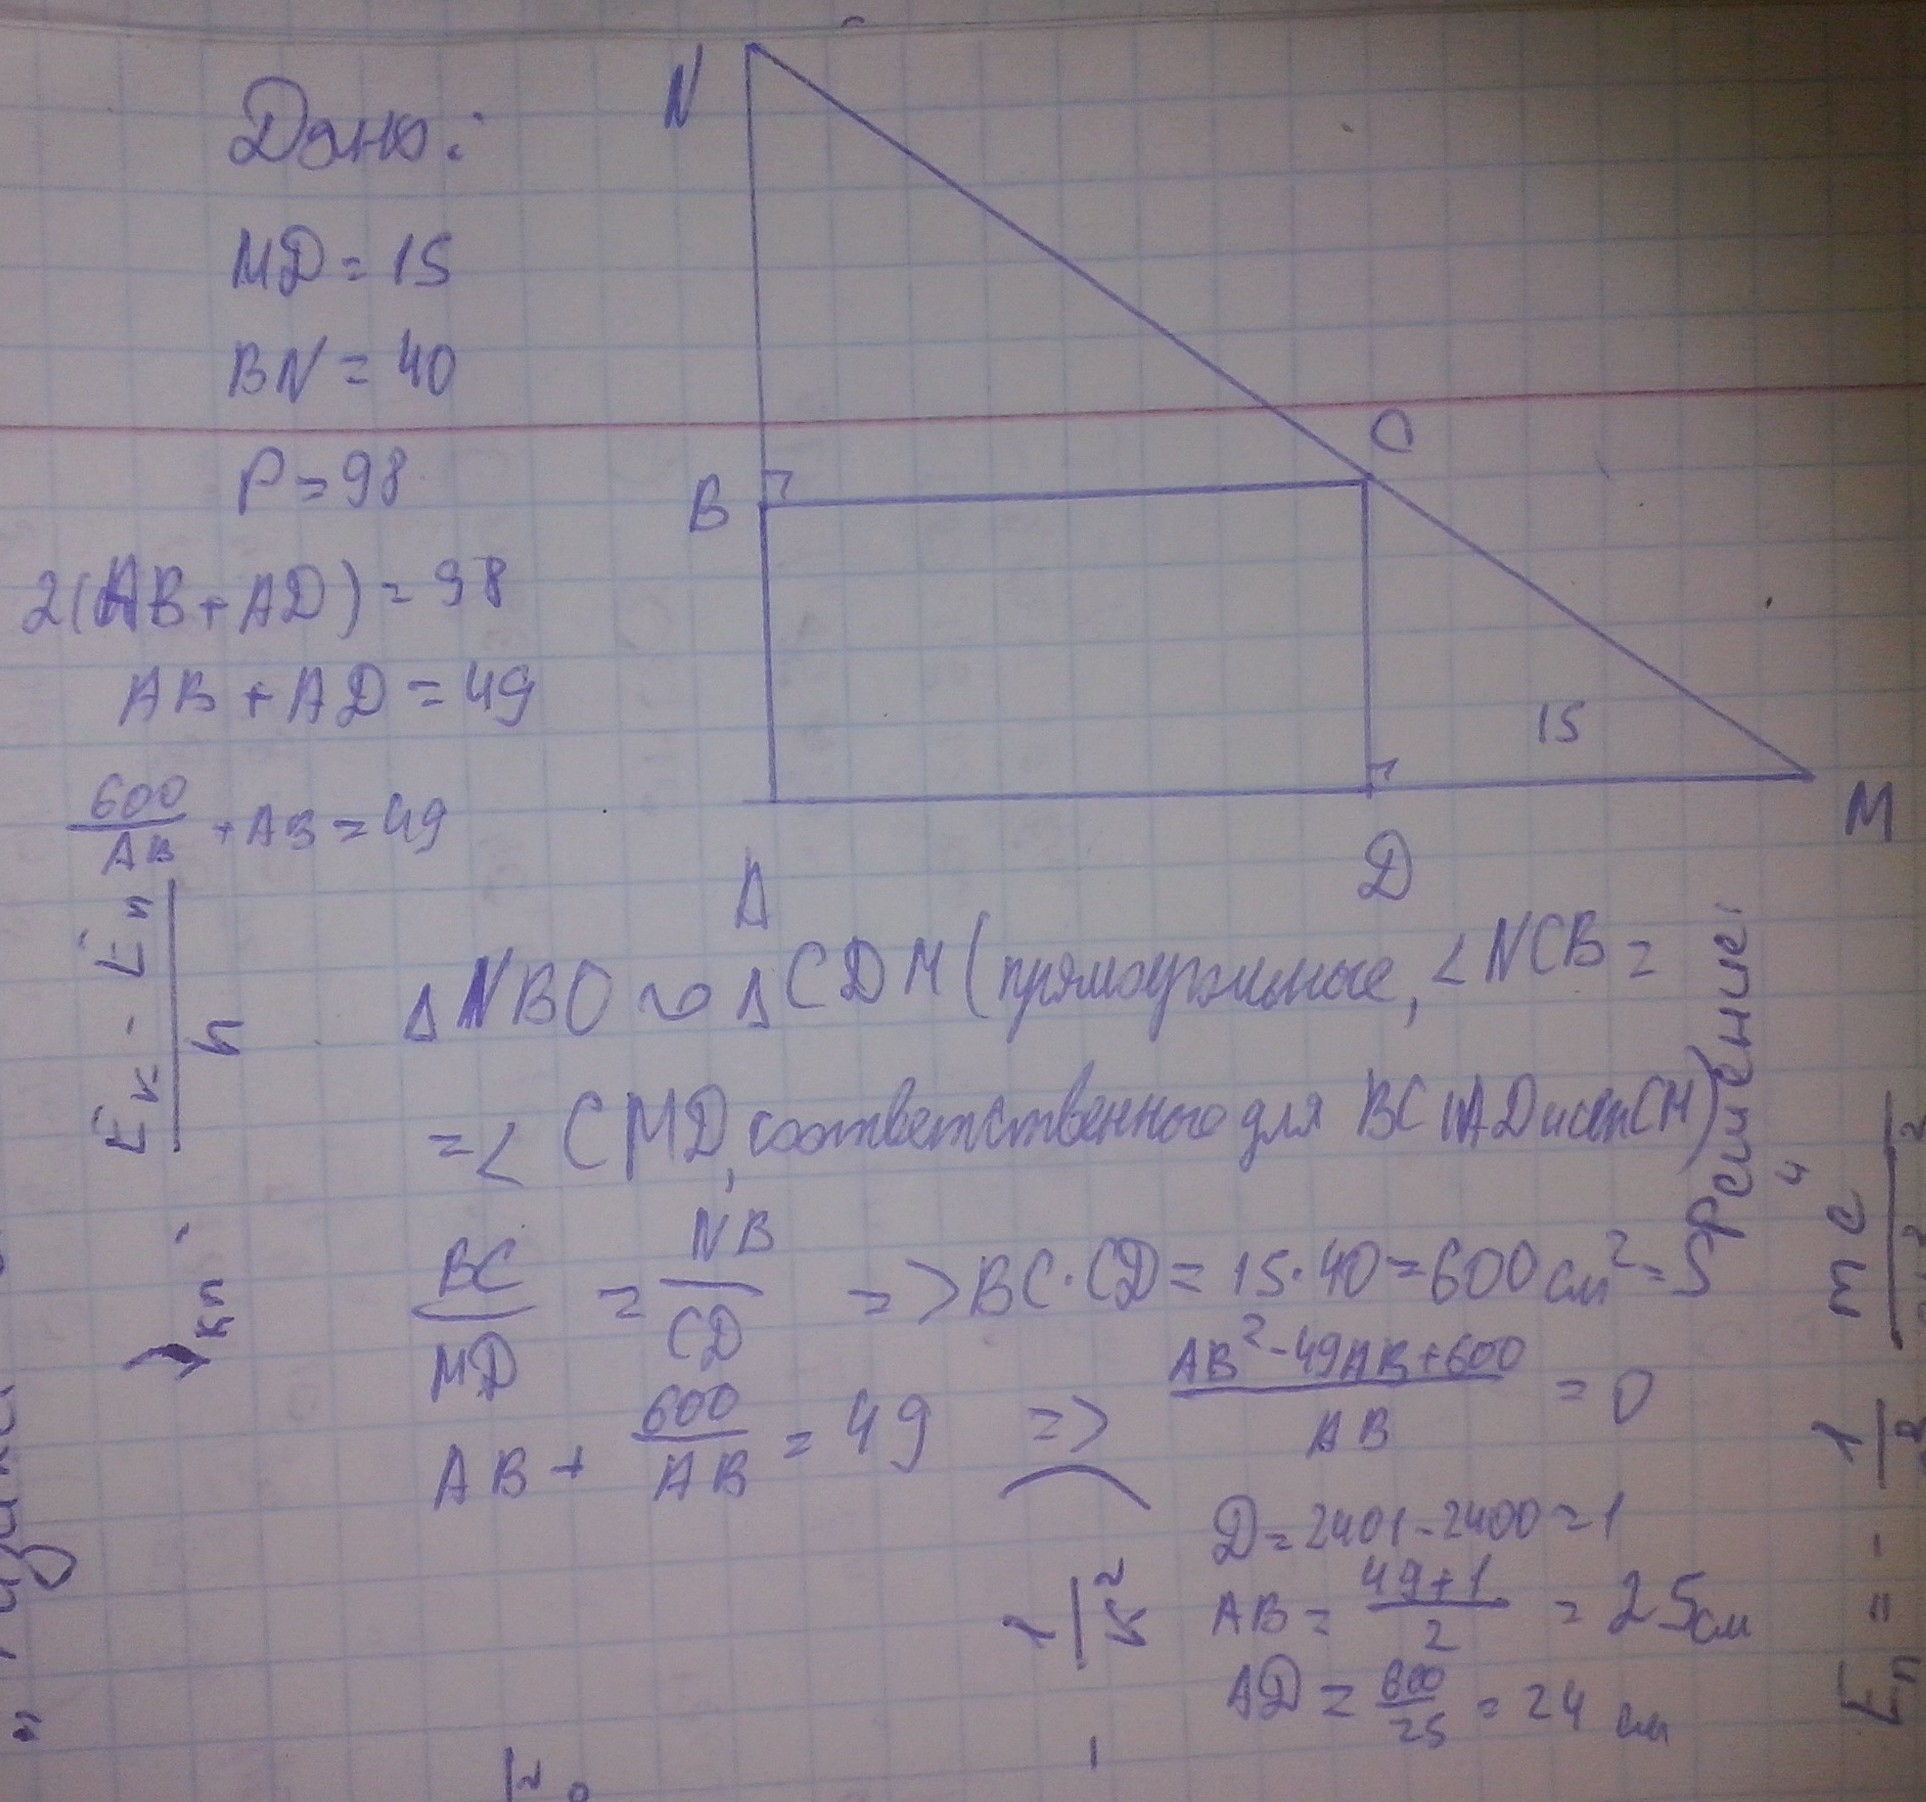 Дано:
MD = 15
BN = 40
P = 98
2(AB + AD) = 98
AB + AD = 49
600/AB + AB = 49
N
B
C
15
A
D
M
Решение:
Δ NBC ~ Δ CDM (прямоугольные, < NCB =
= < CMD, соответственного для BC || AD и сек CM)
BC/MD = NB/CD => BC · CD = 15 · 40 = 600 см² = S
AB + 600/AB = 49 => (AB² - 49AB + 600)/AB = 0
D = 2401 - 2400 = 1
AB = (49 + 1)/2 = 25 см
AD = 600/25 = 24 см
(Eк - Eп)/h
1/к²
Eп = - 1/